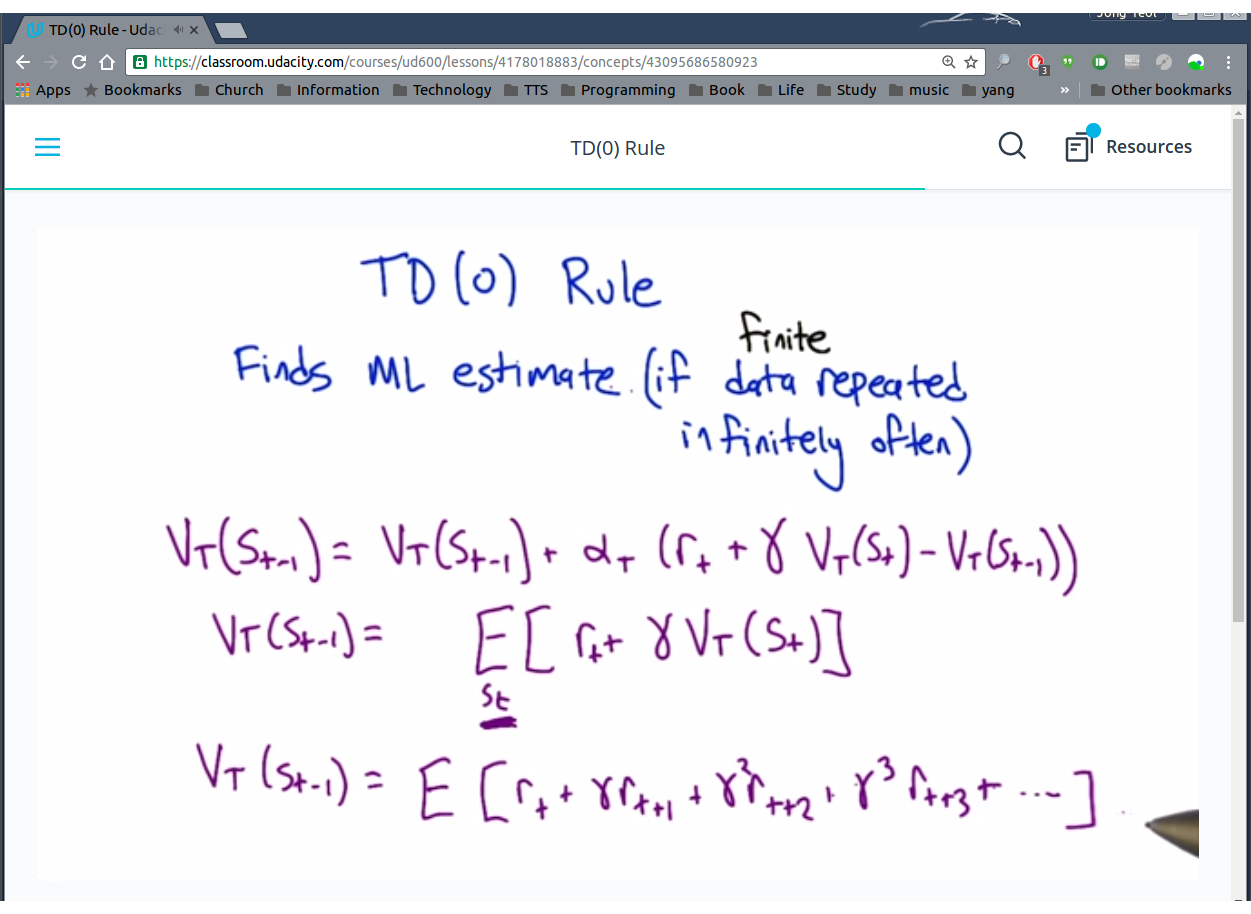 Jong Yeol
TD(0) Rule - Udac
https://classroom.udacity.com/courses/ud600/lessons/4178018883/concepts/43095686580923
3
Apps Bookmarks Church Information Technology TTS Programming Book Life Study music yang » Other bookmarks
TD(0) Rule
Resources
TD(0) Rule
finite
Finds ML estimate (if data repeated
infinitely often)
V_T(S_{t-1}) = V_T(S_{t-1}) + α_T (r_t + γ V_T(S_t) - V_T(S_{t-1}))
V_T(S_{t-1}) = E[r_t + γ V_T(S_t)]
S_t
V_T(S_{t-1}) = E[r_t + γ r_{t+1} + γ² r_{t+2} + γ³ r_{t+3} + ...]